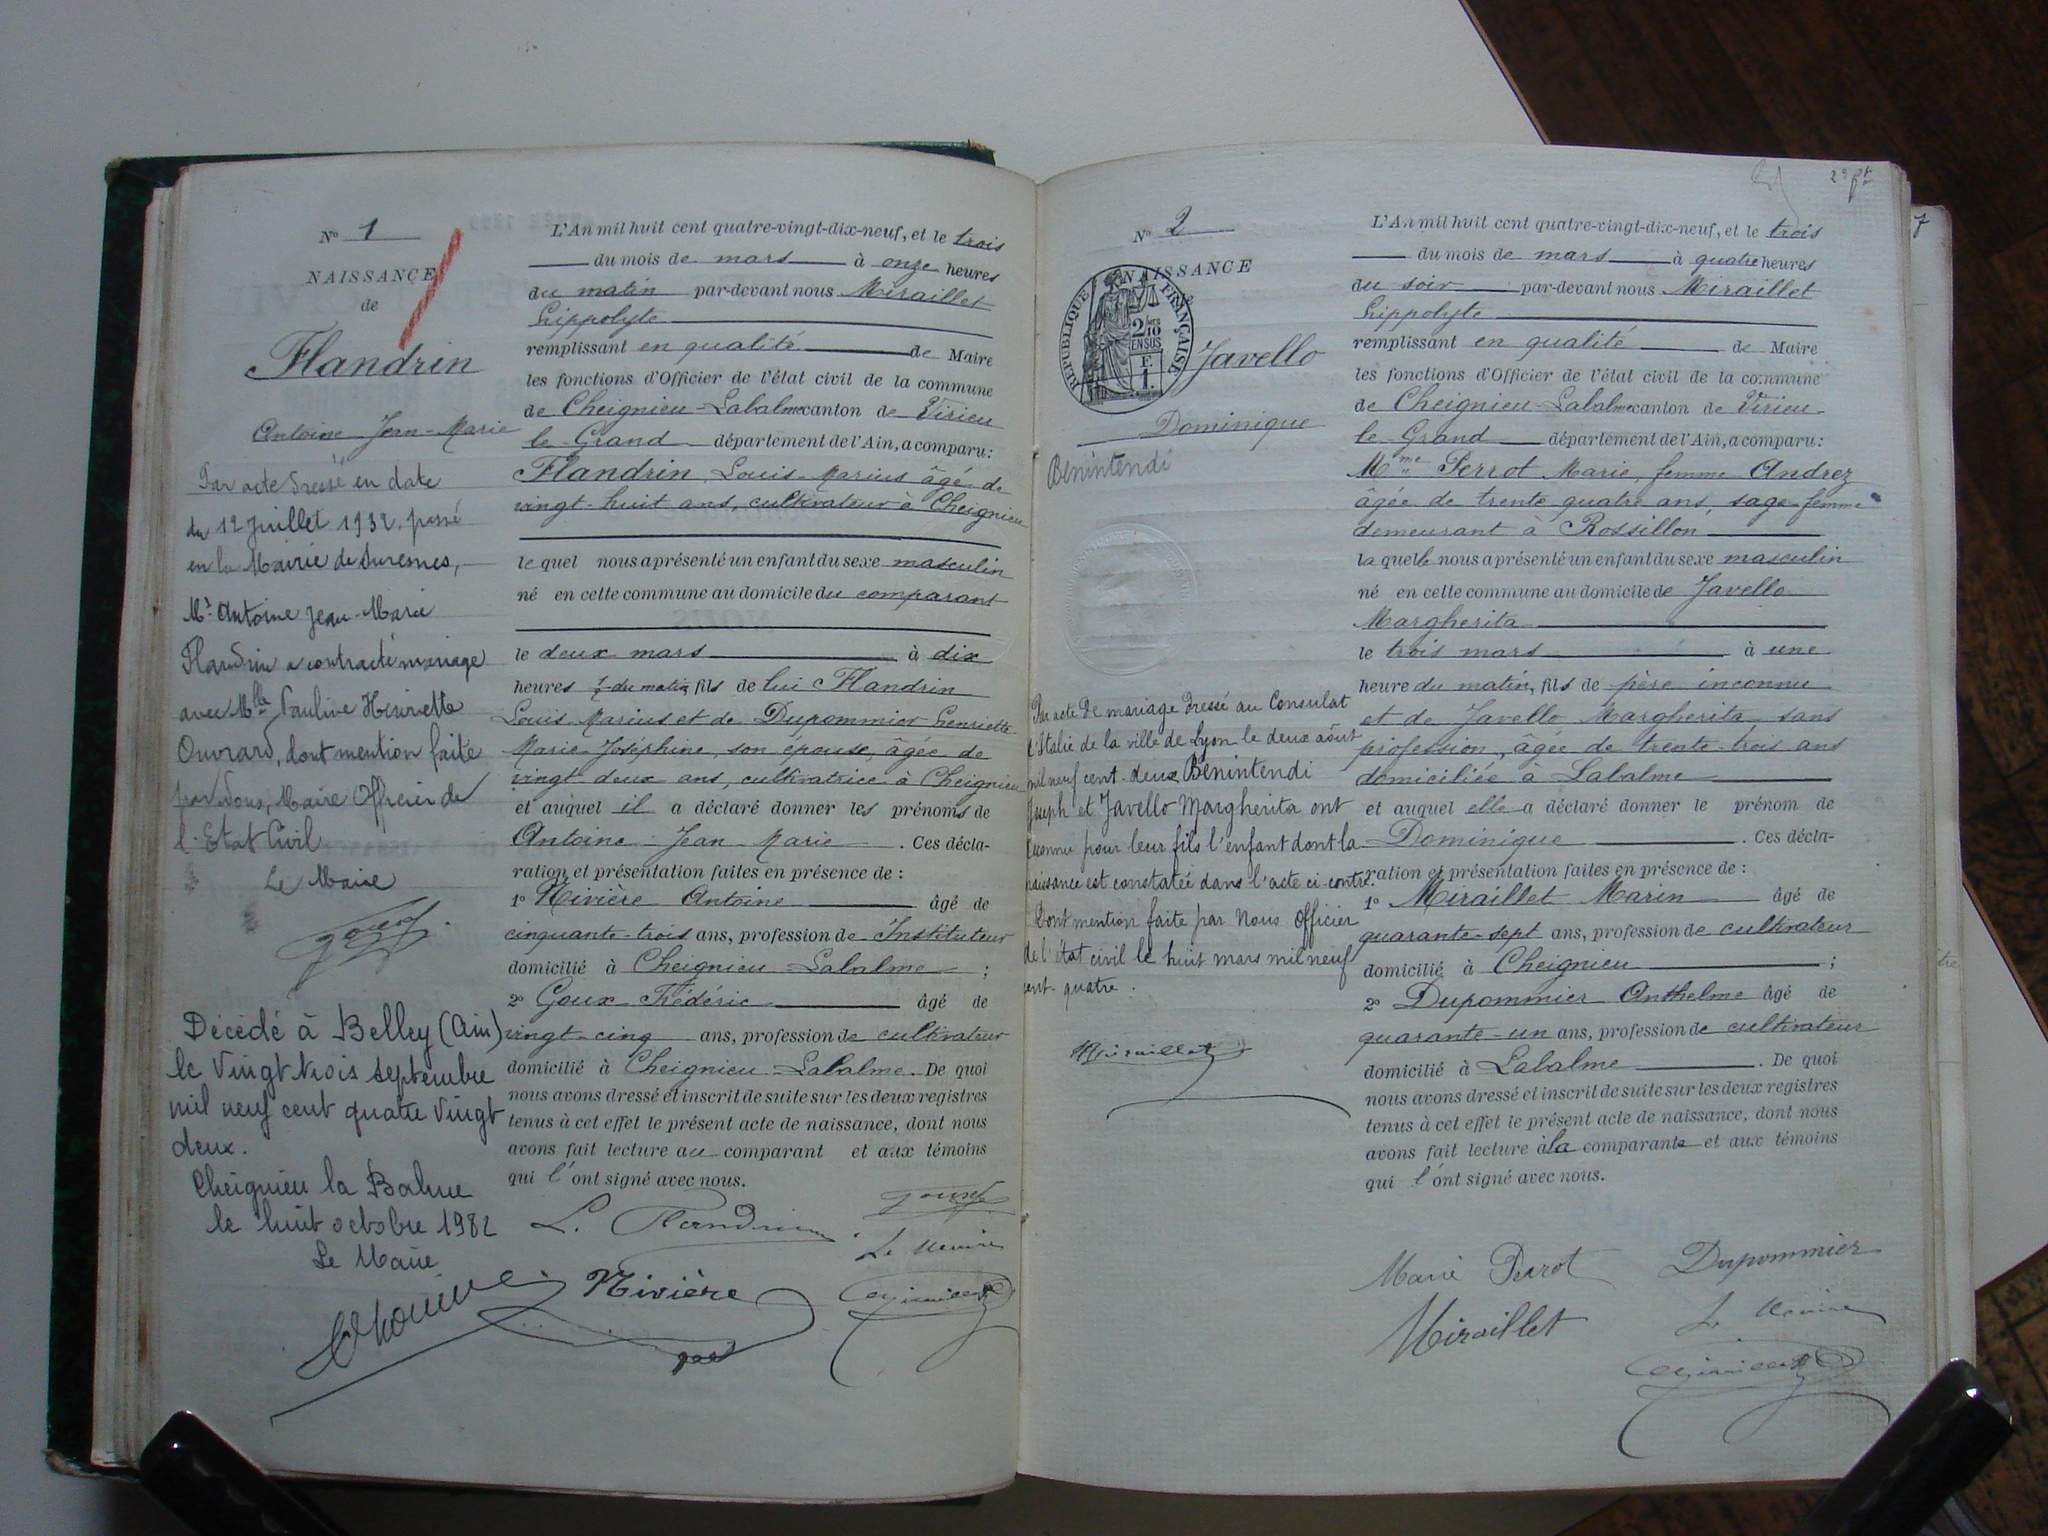 N° 1
NAISSANCE
de
Flandrin
Antoine Jean-Marie
Par acte dressé en date
du 12 Juillet 1932, passé
en la Mairie de Suresnes,
Mr Antoine Jean-Marie
Flandrin a contracté mariage
avec Mlle Pauline Henriette
Ouvrard, dont mention faite
par Nous, Maire Officier de
l'Etat Civil
Le Maire
Décédé à Belley (Ain)
le Vingt trois septembre
mil neuf cent quatre vingt
deux.
Cheignieu la Balme
le huit octobre 1982
Le Maire
L'An mil huit cent quatre-vingt-dix-neuf, et le trois
du mois de mars à onze heures
du matin par-devant nous Miraillet
Hippolyte
remplissant en qualité de Maire
les fonctions d'Officier de l'état civil de la commune
de Cheignieu-Labalme canton de Virieu
le Grand département de l'Ain, a comparu:
Flandrin Louis-Marius âgé de
vingt-huit ans, cultivateur à Cheignieu
le quel nous a présenté un enfant du sexe masculin
né en cette commune au domicile du comparant
le deux mars à dix
heures ½ du matin, fils de lui Flandrin
Louis Marius et de Dupommier Henriette
Marie Joséphine, son épouse, âgée de
vingt-deux ans, cultivatrice à Cheignieu
et auquel il a déclaré donner les prénoms de
Antoine Jean Marie . Ces décla-
ration et présentation faites en présence de :
1° Rivière Antoine âgé de
cinquante-trois ans, profession de Instituteur
domicilié à Cheignieu Labalme ;
2° Goux Frédéric âgé de
vingt-cinq ans, profession de cultivateur
domicilié à Cheignieu-Labalme. De quoi
nous avons dressé et inscrit de suite sur les deux registres
tenus à cet effet le présent acte de naissance, dont nous
avons fait lecture au comparant et aux témoins
qui l'ont signé avec nous.
L. Flandrin
Goux
Le Maire
Rivière
Miraillet
2e ft
7
N° 2
NAISSANCE
RÉPUBLIQUE FRANÇAISE
2/10
EN SUS
F.
1.
Javello
Dominique
Benintendi
Par acte de mariage dressé au Consulat
d'Italie de la ville de Lyon le deux août
mil neuf cent-deux, Benintendi
Joseph et Javello Margherita ont
reconnu pour leur fils l'enfant dont la
naissance est constatée dans l'acte ci-contre.
Dont mention faite par Nous Officier
de l'état civil le huit mars mil neuf
cent-quatre.
Miraillet
L'An mil huit cent quatre-vingt-dix-neuf, et le trois
du mois de mars à quatre heures
du soir par-devant nous Miraillet
Hippolyte
remplissant en qualité de Maire
les fonctions d'Officier de l'état civil de la commune
de Cheignieu-Labalme canton de Virieu
le Grand département de l'Ain, a comparu:
Mme Perrot Marie, femme Andrez
âgée de trente quatre ans, sage-femme
demeurant à Rossillon
la quelle nous a présenté un enfant du sexe masculin
né en cette commune au domicile de Javello
Margherita
le trois mars à une
heure du matin, fils de père inconnu
et de Javello Margherita sans
profession, âgée de trente-trois ans
domiciliée à Labalme
et auquel elle a déclaré donner le prénom de
Dominique . Ces décla-
ration et présentation faites en présence de :
1° Miraillet Marin âgé de
quarante-sept ans, profession de cultivateur
domicilié à Cheignieu ;
2° Dupommier Anthelme âgé de
quarante-un ans, profession de cultivateur
domicilié à Labalme . De quoi
nous avons dressé et inscrit de suite sur les deux registres
tenus à cet effet le présent acte de naissance, dont nous
avons fait lecture à la comparante et aux témoins
qui l'ont signé avec nous.
Marie Perrot
Dupommier
Miraillet
Le Maire
Miraillet